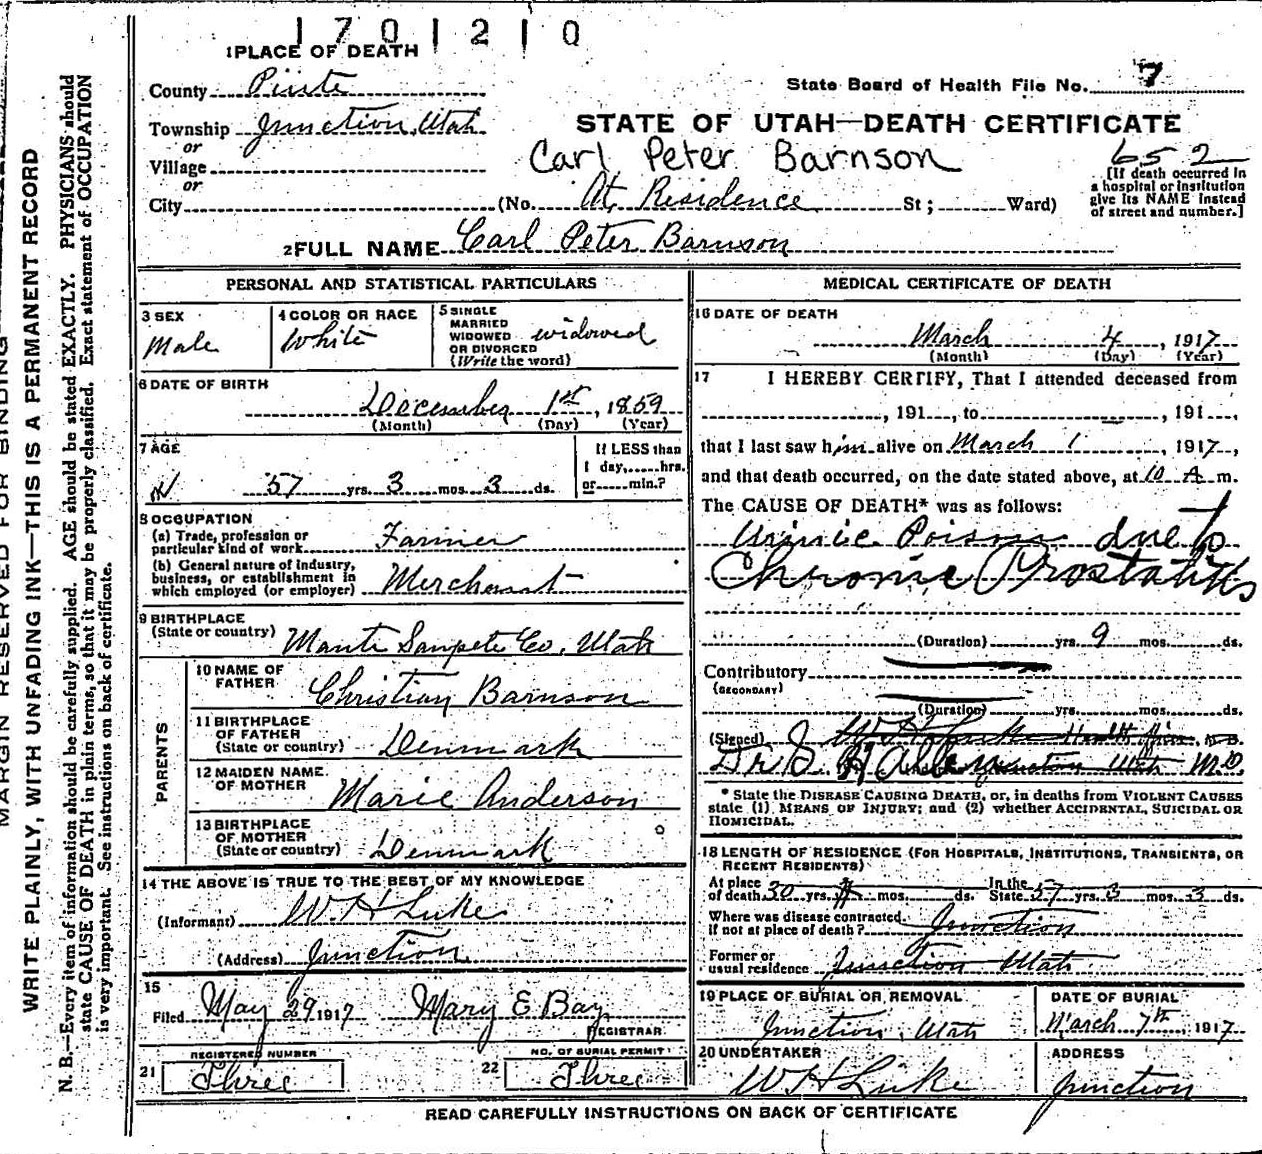 1701210
1 PLACE OF DEATH
County Piute
State Board of Health File No. 7
Township Junction, Utah
or
STATE OF UTAH—DEATH CERTIFICATE
Village
or
Carl Peter Barnson
652
[If death occurred in a hospital or institution give its NAME instead of street and number.]
City (No. At Residence St; Ward)
2 FULL NAME Carl Peter Barnson
PERSONAL AND STATISTICAL PARTICULARS
3 SEX
Male
4 COLOR OR RACE
White
5 SINGLE
MARRIED
WIDOWED
OR DIVORCED
(Write the word)
widowed
6 DATE OF BIRTH
December 1st, 1859
(Month) (Day) (Year)
7 AGE
57 yrs. 3 mos. 3 ds.
If LESS than
1 day, hrs.
or min.?
8 OCCUPATION
(a) Trade, profession or
particular kind of work Farmer
(b) General nature of industry,
business, or establishment in
which employed (or employer) Merchant
9 BIRTHPLACE
(State or country) Manti Sanpete Co, Utah
PARENTS
10 NAME OF
FATHER Christian Barnson
11 BIRTHPLACE
OF FATHER
(State or country) Denmark
12 MAIDEN NAME
OF MOTHER Marie Anderson
13 BIRTHPLACE
OF MOTHER
(State or country) Denmark
14 THE ABOVE IS TRUE TO THE BEST OF MY KNOWLEDGE
(Informant) W H Luke
(Address) Junction
15
Filed May 29 1917 Mary E Bay
REGISTRAR
21 REGISTERED NUMBER
Three
22 NO. OF BURIAL PERMIT
Three
MEDICAL CERTIFICATE OF DEATH
16 DATE OF DEATH
March 4, 1917
(Month) (Day) (Year)
17 I HEREBY CERTIFY, That I attended deceased from
, 191 , to , 191 ,
that I last saw him alive on March 1, 1917,
and that death occurred, on the date stated above, at 10 A m.
The CAUSE OF DEATH* was as follows:
Poison due to
Chronic Prostatitis
(Duration) yrs. 9 mos. ds.
Contributory
(SECONDARY)
(Duration) yrs. mos. ds.
(Signed) W H Luke Health Officer, M.D.
Dr Junction Utah M.D.
* State the DISEASE CAUSING DEATH, or, in deaths from VIOLENT CAUSES
state (1) MEANS OF INJURY; and (2) whether ACCIDENTAL, SUICIDAL OR
HOMICIDAL.
18 LENGTH OF RESIDENCE (FOR HOSPITALS, INSTITUTIONS, TRANSIENTS, OR
RECENT RESIDENTS)
At place
of death 30 yrs. mos. ds. In the
State 57 yrs. 3 mos. 3 ds.
Where was disease contracted
if not at place of death? Junction
Former or
usual residence Junction Utah
19 PLACE OF BURIAL OR REMOVAL
Junction, Utah
DATE OF BURIAL
March 7th, 1917
20 UNDERTAKER
W H Luke
ADDRESS
Junction
READ CAREFULLY INSTRUCTIONS ON BACK OF CERTIFICATE
MARGIN RESERVED FOR BINDING
WRITE PLAINLY, WITH UNFADING INK—THIS IS A PERMANENT RECORD
N. B.—Every item of information should be carefully supplied. AGE should be stated EXACTLY. PHYSICIANS should
state CAUSE OF DEATH in plain terms, so that it may be properly classified. Exact statement of OCCUPATION
is very important. See instructions on back of certificate.